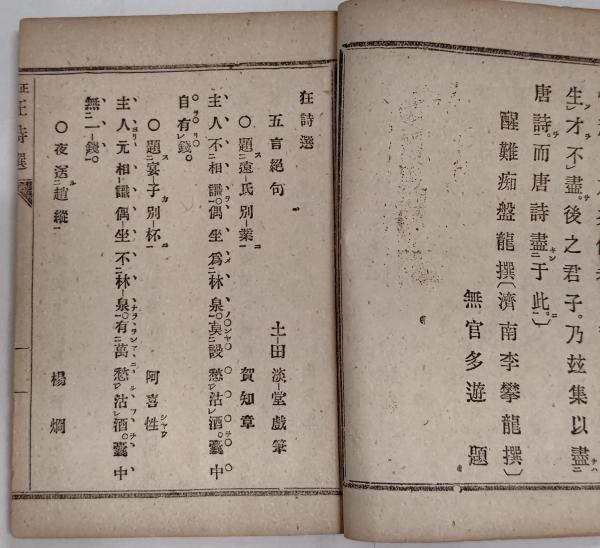 生才不盡。後之君子。乃玆集以盡
唐詩。而唐詩盡于此。〕
醒難痴盤龍撰〔濟南李攀龍撰〕
無官多遊 題
狂詩選
五言絕句 土田淡堂戲筆
〇題遠氏別業 賀知章
主人不相識。偶坐爲林泉。莫謾愁沽酒。囊中
自有錢。
〇題宴子別杯 阿喜性
主人元相識。偶坐不林泉。有萬愁沽酒。囊中
無一錢。
〇夜送趙縱 楊烱
狂詩選
一